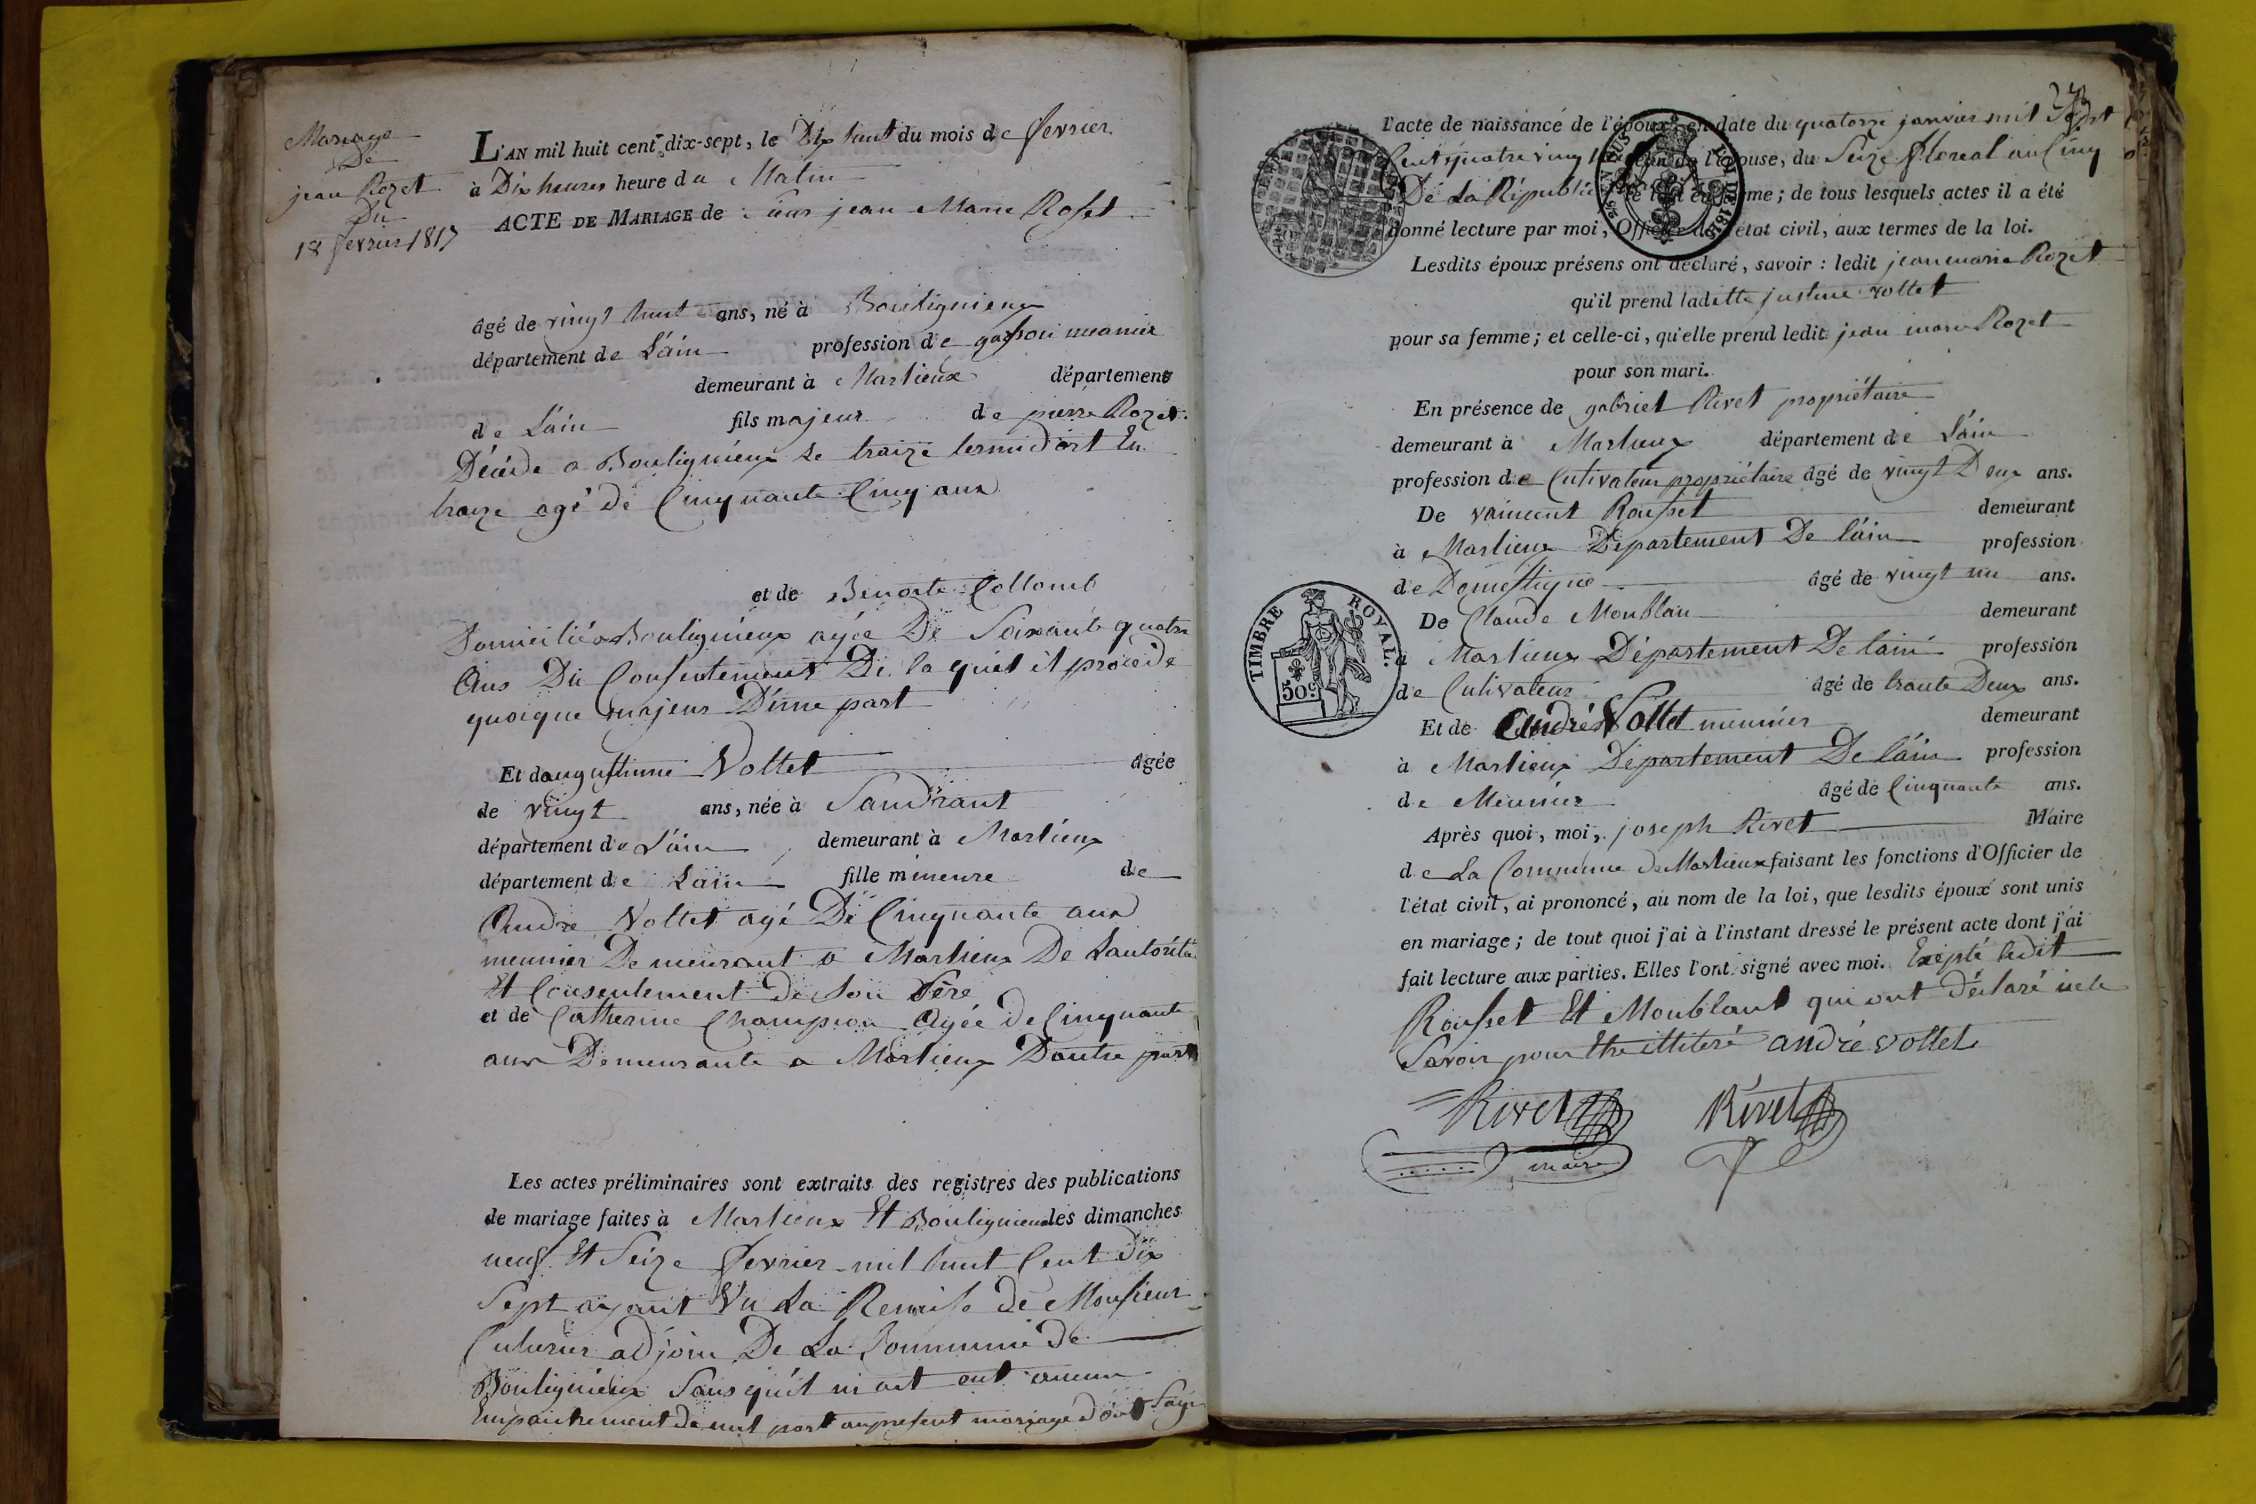 Mariage
De
jean Rozet
Du
18 fevrier 1817
L'AN mil huit cent dix-sept, le Dix huit du mois de fevrier
à Dix heures heure du Matin
ACTE DE MARIAGE de Sieur jean Marie Roset
âgé de vingt huit ans, né à Boulignieux
département de L'ain profession de garson meunier
demeurant à Marlieux département
de L'ain fils majeur de pierre Rozet
Décéde a Bouligniéux le traize termidort En
traize agé de Cinquante Cinq ans
et de Benoite Collomb
Domicilié a Bouligniéux agée De Soixante quatre
Ans Du Consentement De la quél il procéde
quoique majeur D'une part
Et daugustinne Vollet âgée
de vingt ans, née à Sandrant
département de L'ain demeurant à Marlieux
département de Lain fille mineure de
Andre Vollet agé De Cinquante ans
meunier Demeurant a Marlieux De Lautorité
Et Consentement De Son Pére
et de Catherine Champion Agée de Cinquante
ans Demeurante a Marlieux Dautre part
Les actes préliminaires sont extraits des registres des publications
de mariage faites à Marlieux Et Bouligneux les dimanches
neuf Et Seize fevrier mil huit Cent dix
Sept ayant Vu La Remise de Monsieur
adjoin De La Commune de
Bouligniéux Sans quél ni ait eut aucun
Empaichement de nul part au présent mariage dont
l'acte de naissance de l'époux, en date du quatorze janvier mil Sept
Cent quatre vingt de l'épouse, du Seize floreal an Cinq
De La République le tout en forme ; de tous lesquels actes il a été
donné lecture par moi, Officier de l'état civil, aux termes de la loi.
25 EN SUS
TIMBRE ROYAL.
50 c
Lesdits époux présens ont déclaré, savoir : ledit jean marie Rozet
qu'il prend ladette justine vollet
pour sa femme ; et celle-ci, qu'elle prend ledit jean marie Rozet
pour son mari.
En présence de gabriel Rivet propriétaire
demeurant à Marlieux département de L'ain
profession de Cultivateur propriétaire âgé de vingt Deux ans.
De vaincent Rousset demeurant
à Marlieux Département De l'ain profession
de Doméstique âgé de vingt un ans.
De Claude Monblan demeurant
a Marlieux Département De lain profession
de Cultivateur âgé de trante Deux ans.
Et de André Vollet meunier demeurant
à Marlieux Département De L'ain profession
de Meunier âgé de Cinquante ans.
Après quoi, moi, joseph Rivet Maire
de La Commune de Marlieux faisant les fonctions d'Officier de
l'état civil, ai prononcé, au nom de la loi, que lesdits époux sont unis
en mariage ; de tout quoi j'ai à l'instant dressé le présent acte dont j'ai
fait lecture aux parties. Elles l'ont signé avec moi. Exépté ledit
Rousset Et Monblant qui ont déclaré ne le
Savoir pour Etre illitéré andré vollet
Rivet Rivet
maire